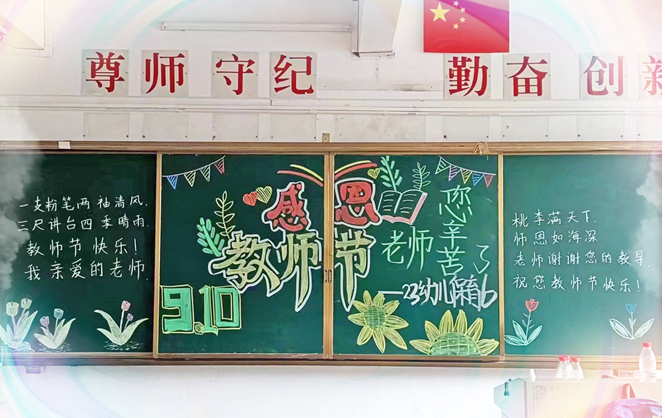 尊师 守纪
勤奋 创新
一支粉笔两袖清风,
三尺讲台四季晴雨.
教师节快乐!
我亲爱的老师
感恩
教师节
9.10
老师
您辛苦了
——23幼儿保育6
桃李满天下.
师恩如海深
老师谢谢您的教导.
祝您教师节快乐!